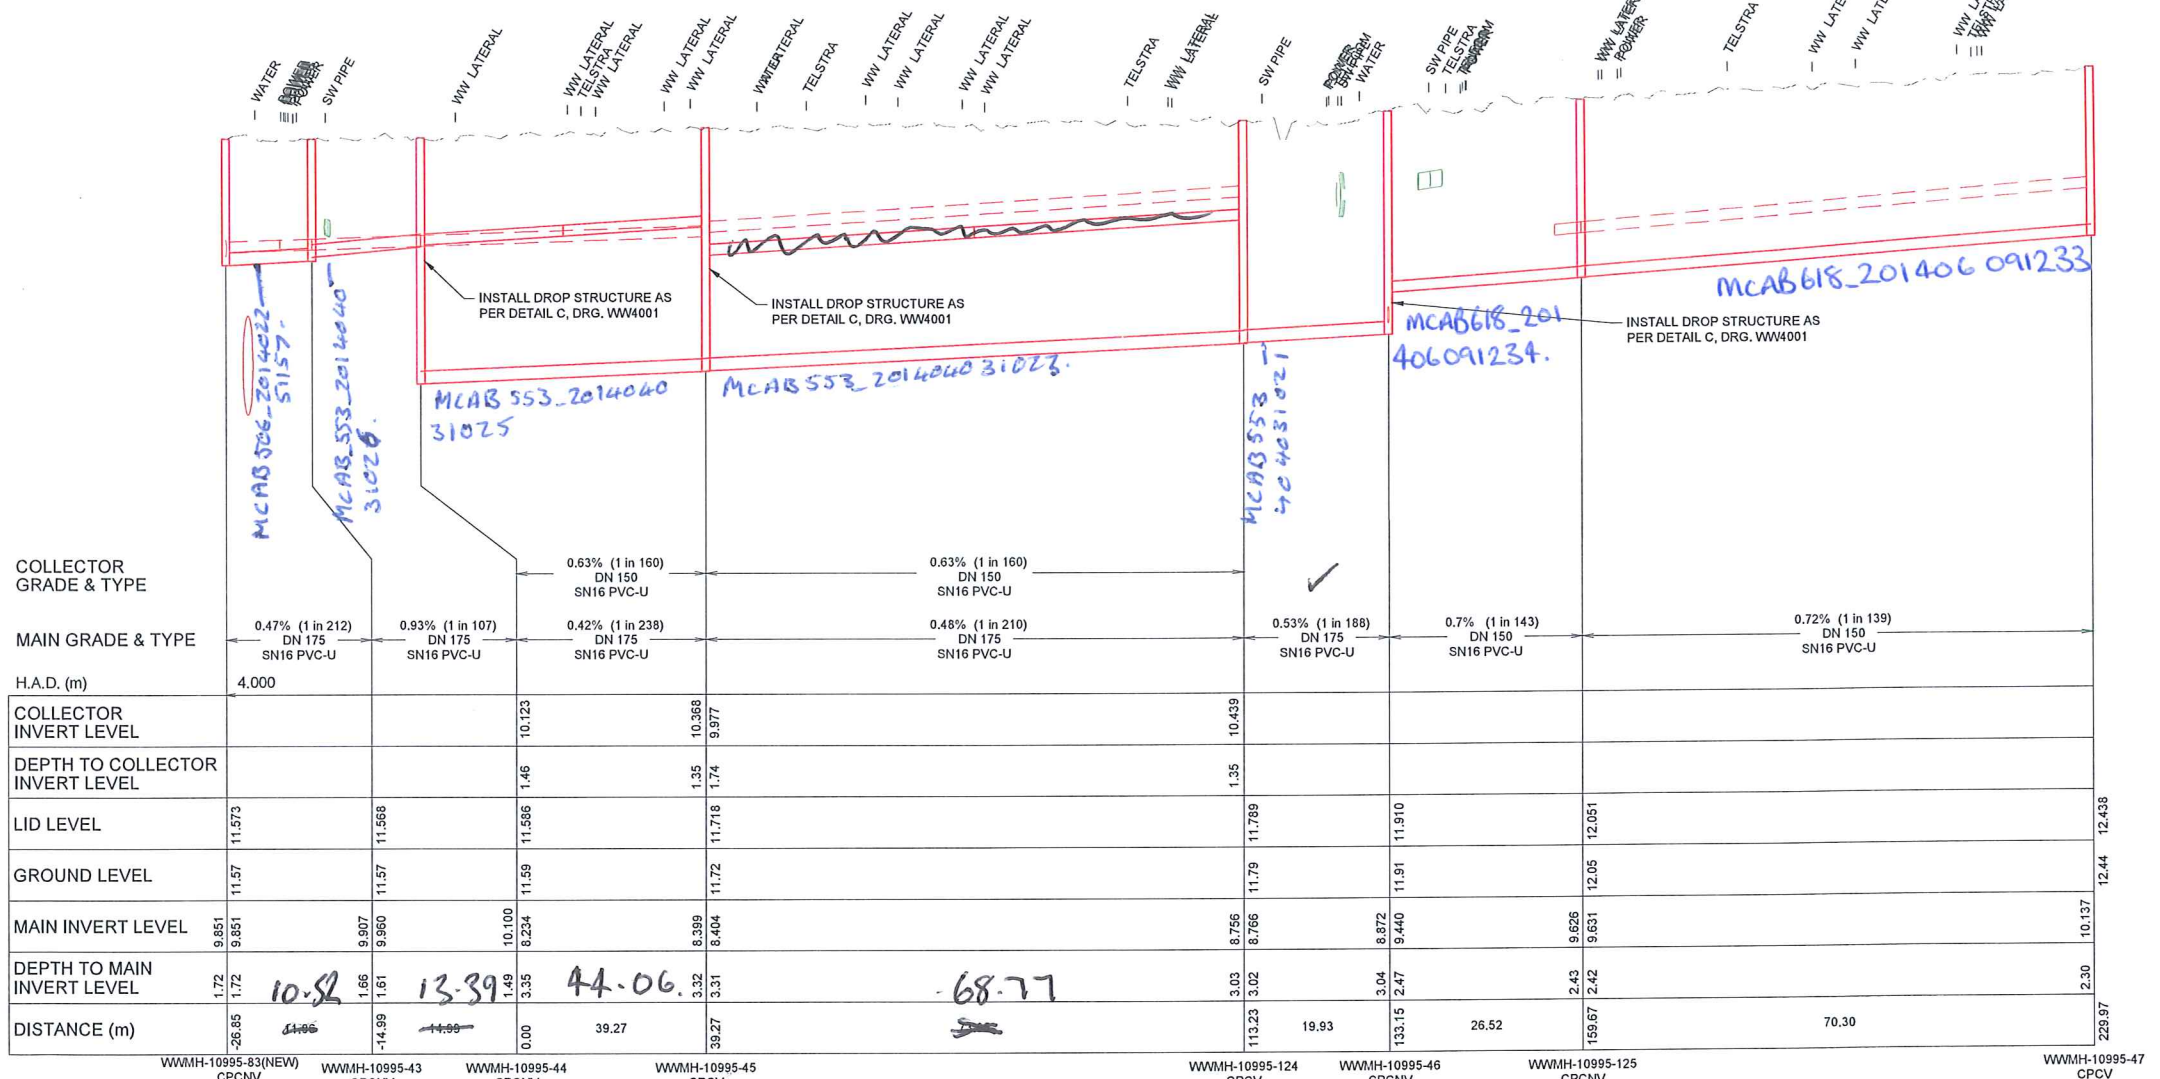 WATER
POWER
SW PIPE
WW LATERAL
WW LATERAL
TELSTRA
WW LATERAL
WW LATERAL
WW LATERAL
WATER
TELSTRA
WW LATERAL
WW LATERAL
WW LATERAL
WW LATERAL
TELSTRA
WW LATERAL
SW PIPE
POWER
WATER
SW PIPE
TELSTRA
POWER
WW LATERAL
POWER
TELSTRA
WW LATE
WW LAT
INSTALL DROP STRUCTURE AS
PER DETAIL C, DRG. WW4001
INSTALL DROP STRUCTURE AS
PER DETAIL C, DRG. WW4001
INSTALL DROP STRUCTURE AS
PER DETAIL C, DRG. WW4001
MCAB506_2014022
51157.
MCAB_553_2014040
31026.
MCAB 553_2014040
31025
MCAB 553_201404031023.
MCAB553_
404031021
MCAB618_201
406091234.
MCAB618_201406 091233
COLLECTOR
GRADE & TYPE
0.63% (1 in 160)
DN 150
SN16 PVC-U
0.63% (1 in 160)
DN 150
SN16 PVC-U
MAIN GRADE & TYPE
0.47% (1 in 212)
DN 175
SN16 PVC-U
0.93% (1 in 107)
DN 175
SN16 PVC-U
0.42% (1 in 238)
DN 175
SN16 PVC-U
0.48% (1 in 210)
DN 175
SN16 PVC-U
0.53% (1 in 188)
DN 175
SN16 PVC-U
0.7% (1 in 143)
DN 150
SN16 PVC-U
0.72% (1 in 139)
DN 150
SN16 PVC-U
H.A.D. (m) 4.000
COLLECTOR
INVERT LEVEL
10.123 10.368 9.977 10.439
DEPTH TO COLLECTOR
INVERT LEVEL
1.46 1.35 1.74 1.35
LID LEVEL 11.573 11.568 11.586 11.718 11.789 11.910 12.051 12.438
GROUND LEVEL 11.57 11.57 11.59 11.72 11.79 11.91 12.05 12.44
MAIN INVERT LEVEL 9.851 9.851 9.907 9.960 10.100 8.234 8.399 8.404 8.756 8.766 8.872 9.440 9.626 9.631 10.137
DEPTH TO MAIN
INVERT LEVEL
1.72 1.72 10.52 1.66 1.61 13.39 1.49 3.35 44.06. 3.32 3.31 68.77 3.03 3.02 3.04 2.47 2.43 2.42 2.30
DISTANCE (m) -26.85 11.86 -14.99 14.99 0.00 39.27 39.27 113.23 19.93 133.15 26.52 159.67 70.30 229.97
WWMH-10995-83(NEW)
CPCNV
WWMH-10995-43
WWMH-10995-44
WWMH-10995-45
WWMH-10995-124
WWMH-10995-46
WWMH-10995-125
WWMH-10995-47
CPCV